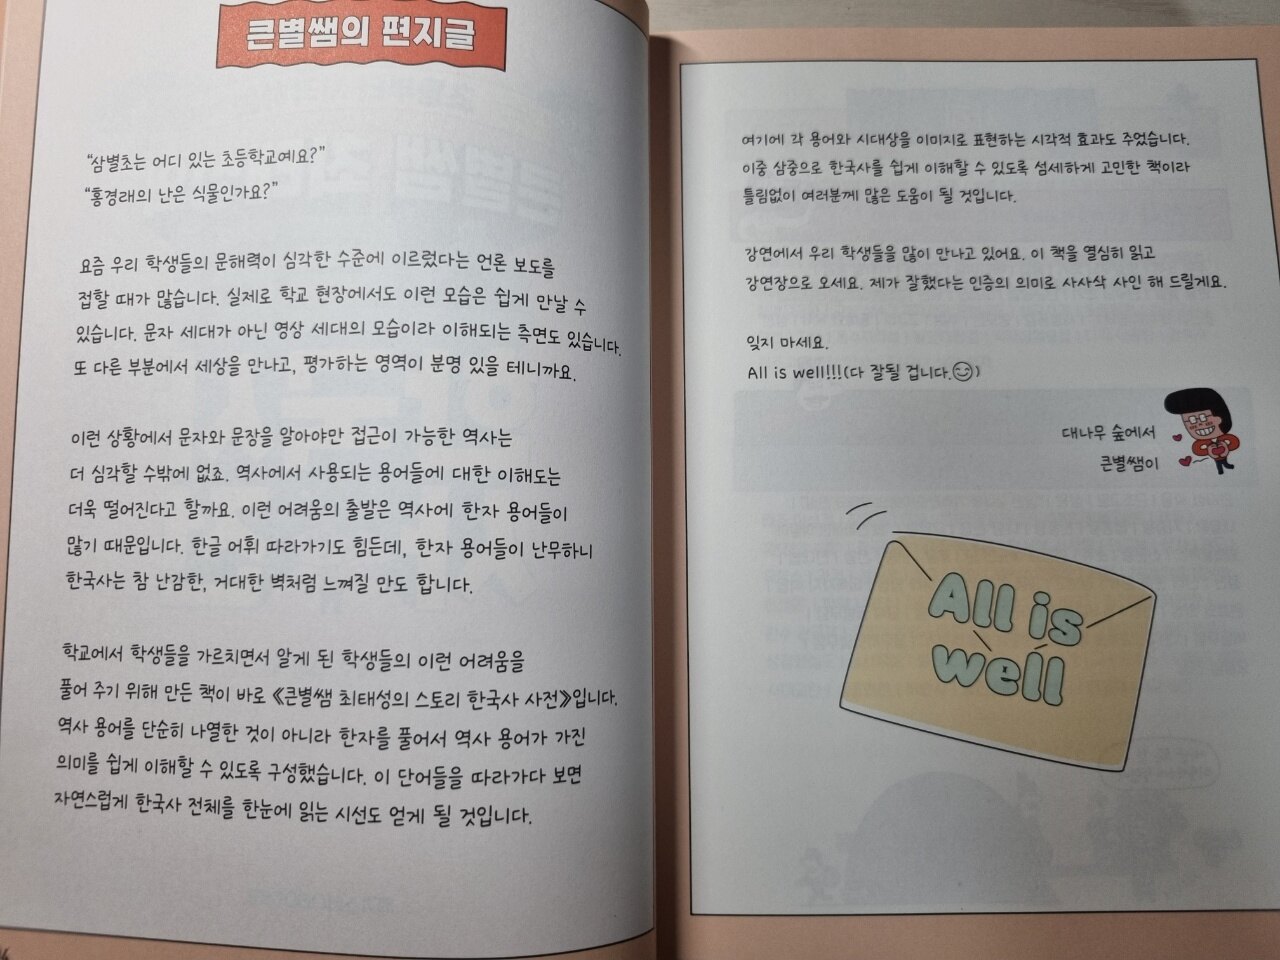 큰별쌤의 편지글
“삼별초는 어디 있는 초등학교예요?”
“홍경래의 난은 식물인가요?”
요즘 우리 학생들의 문해력이 심각한 수준에 이르렀다는 언론 보도를
접할 때가 많습니다. 실제로 학교 현장에서도 이런 모습은 쉽게 만날 수
있습니다. 문자 세대가 아닌 영상 세대의 모습이라 이해되는 측면도 있습니다.
또 다른 부분에서 세상을 만나고, 평가하는 영역이 분명 있을 테니까요.
이런 상황에서 문자와 문장을 알아야만 접근이 가능한 역사는
더 심각할 수밖에 없죠. 역사에서 사용되는 용어들에 대한 이해도는
더욱 떨어진다고 할까요. 이런 어려움의 출발은 역사에 한자 용어들이
많기 때문입니다. 한글 어휘 따라가기도 힘든데, 한자 용어들이 난무하니
한국사는 참 난감한, 거대한 벽처럼 느껴질 만도 합니다.
학교에서 학생들을 가르치면서 알게 된 학생들의 이런 어려움을
풀어 주기 위해 만든 책이 바로 《큰별쌤 최태성의 스토리 한국사 사전》입니다.
역사 용어를 단순히 나열한 것이 아니라 한자를 풀어서 역사 용어가 가진
의미를 쉽게 이해할 수 있도록 구성했습니다. 이 단어들을 따라가다 보면
자연스럽게 한국사 전체를 한눈에 읽는 시선도 얻게 될 것입니다.
여기에 각 용어와 시대상을 이미지로 표현하는 시각적 효과도 주었습니다.
이중 삼중으로 한국사를 쉽게 이해할 수 있도록 섬세하게 고민한 책이라
틀림없이 여러분께 많은 도움이 될 것입니다.
강연에서 우리 학생들을 많이 만나고 있어요. 이 책을 열심히 읽고
강연장으로 오세요. 제가 잘했다는 인증의 의미로 사사삭 사인 해 드릴게요.
잊지 마세요.
All is well!!!(다 잘될 겁니다.😉)
대나무 숲에서
큰별쌤이
All is
well